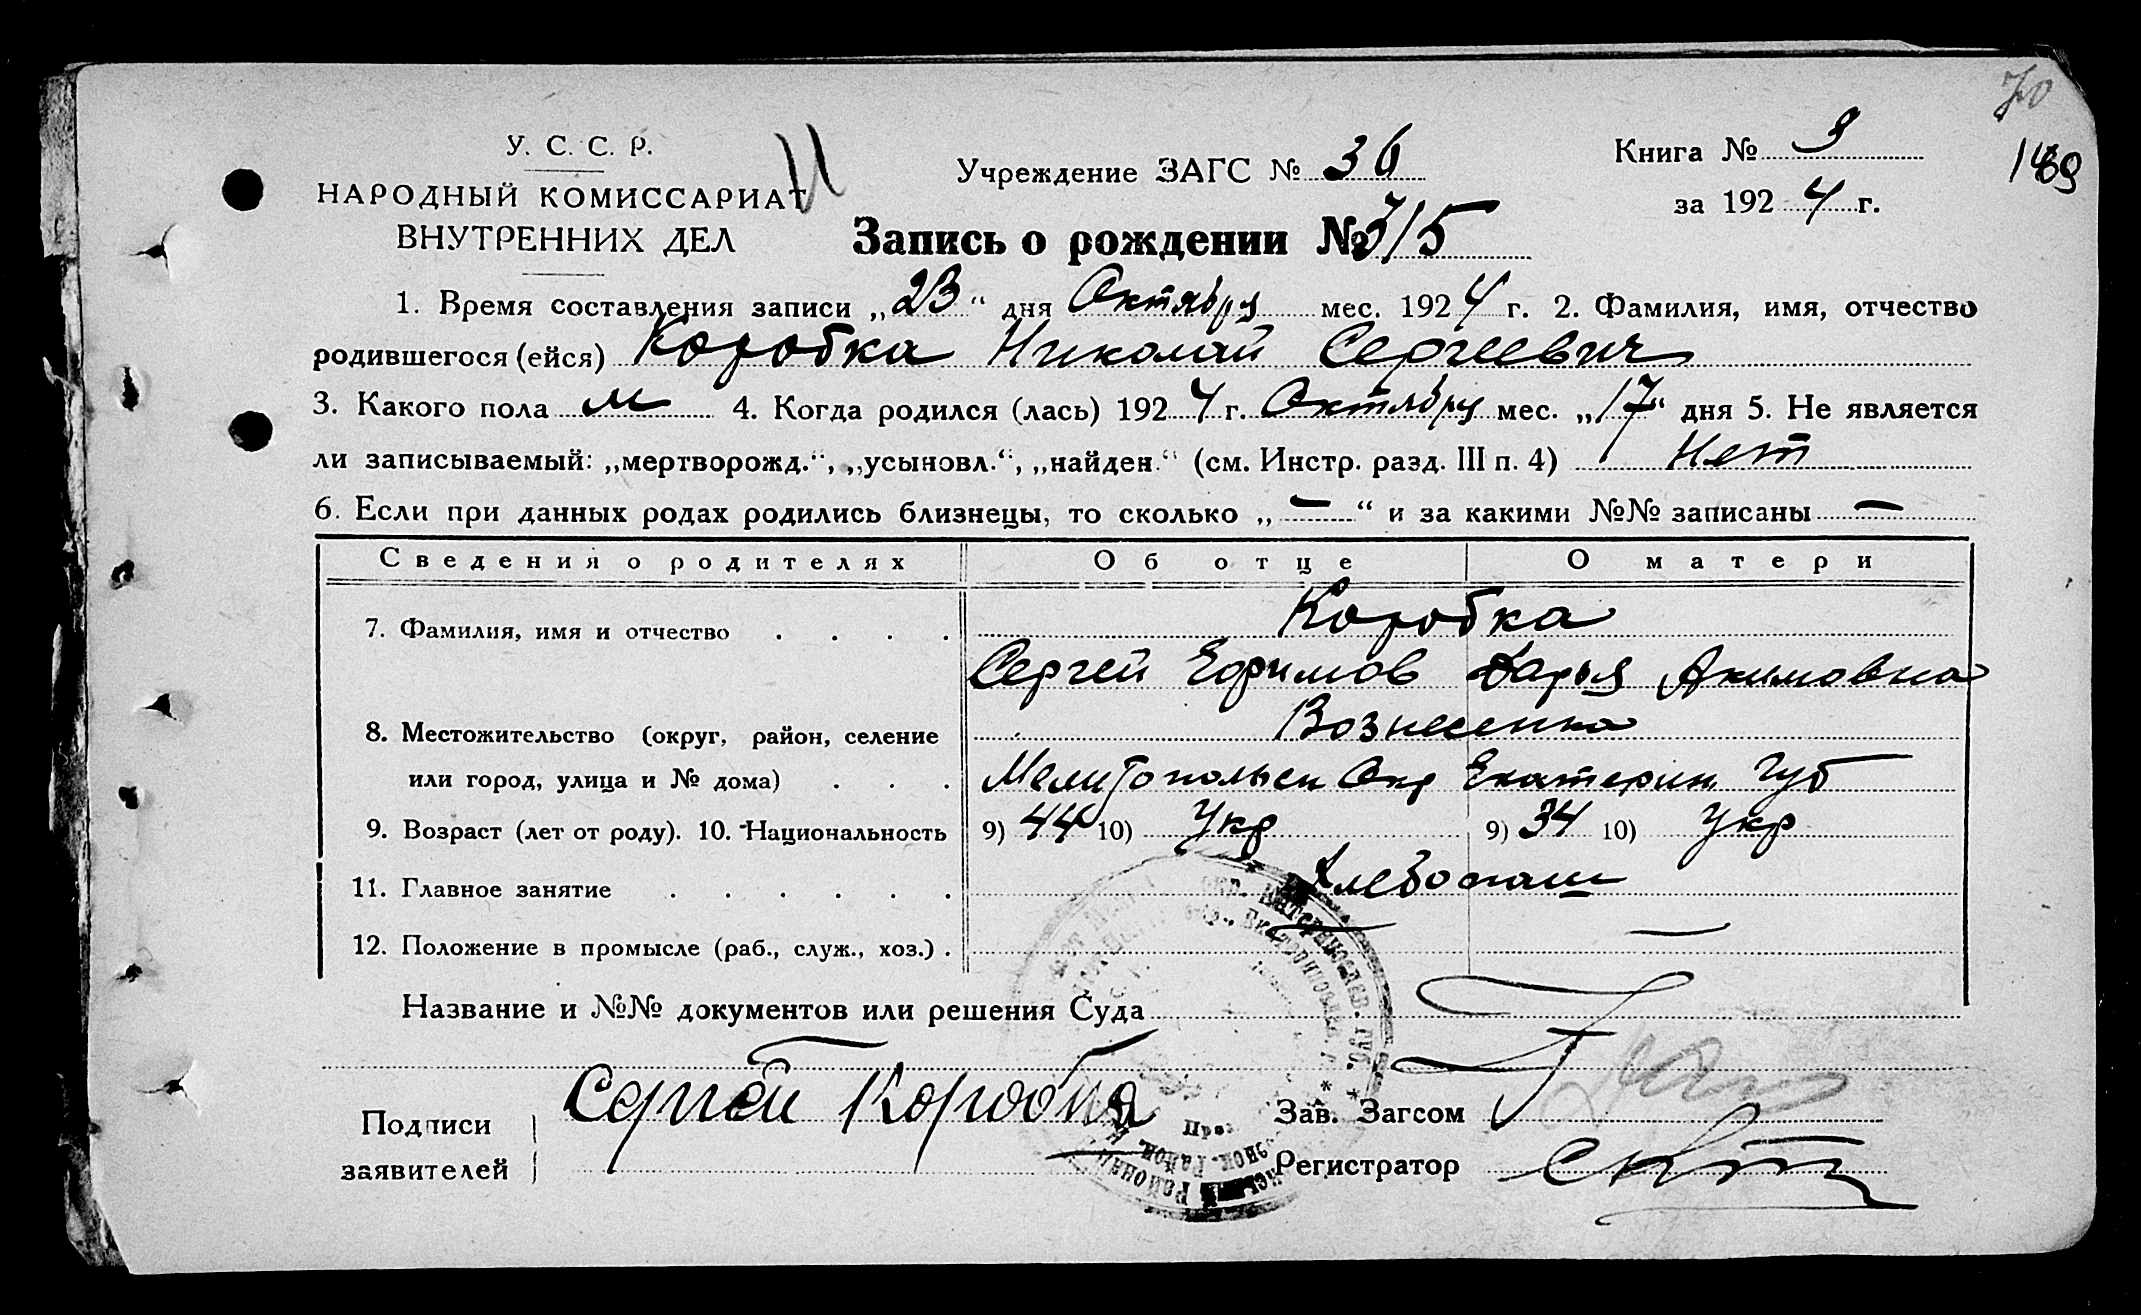 70
У. С. С. Р.
НАРОДНЫЙ КОМИССАРИАТ
ВНУТРЕННИХ ДЕЛ
Учреждение ЗАГС № 36
Книга № 3
за 1924 г.
Запись о рождении № 715
1. Время составления записи „23“ дня Октября мес. 1924 г. 2. Фамилия, имя, отчество
родившегося (ейся) Коробка Николай Сергеевич
3. Какого пола м 4. Когда родился (лась) 1924 г. Октября мес. „17“ дня 5. Не является
ли записываемый: „мертворожд.“, „усыновл.“, „найден.“ (см. Инстр. разд. III п. 4) Нет
6. Если при данных родах родились близнецы, то сколько „—“ и за какими №№ записаны —
Сведения о родителях Об отце О матери
7. Фамилия, имя и отчество . . . . Коробка
Сергей Ефимов Дарья Акимовна
8. Местожительство (округ, район, селение Вознесенка
или город, улица и № дома) . . . Мелитопольск Окр Екатерин. Губ
9. Возраст (лет от роду). 10. Национальность 9) 44 10) Укр 9) 34 10) Укр
11. Главное занятие . . . . . . Хлебопаш
12. Положение в промысле (раб., служ., хоз.) . —
Название и №№ документов или решения Суда
Подписи Сергей Коробка Зав. Загсом
заявителей Регистратор